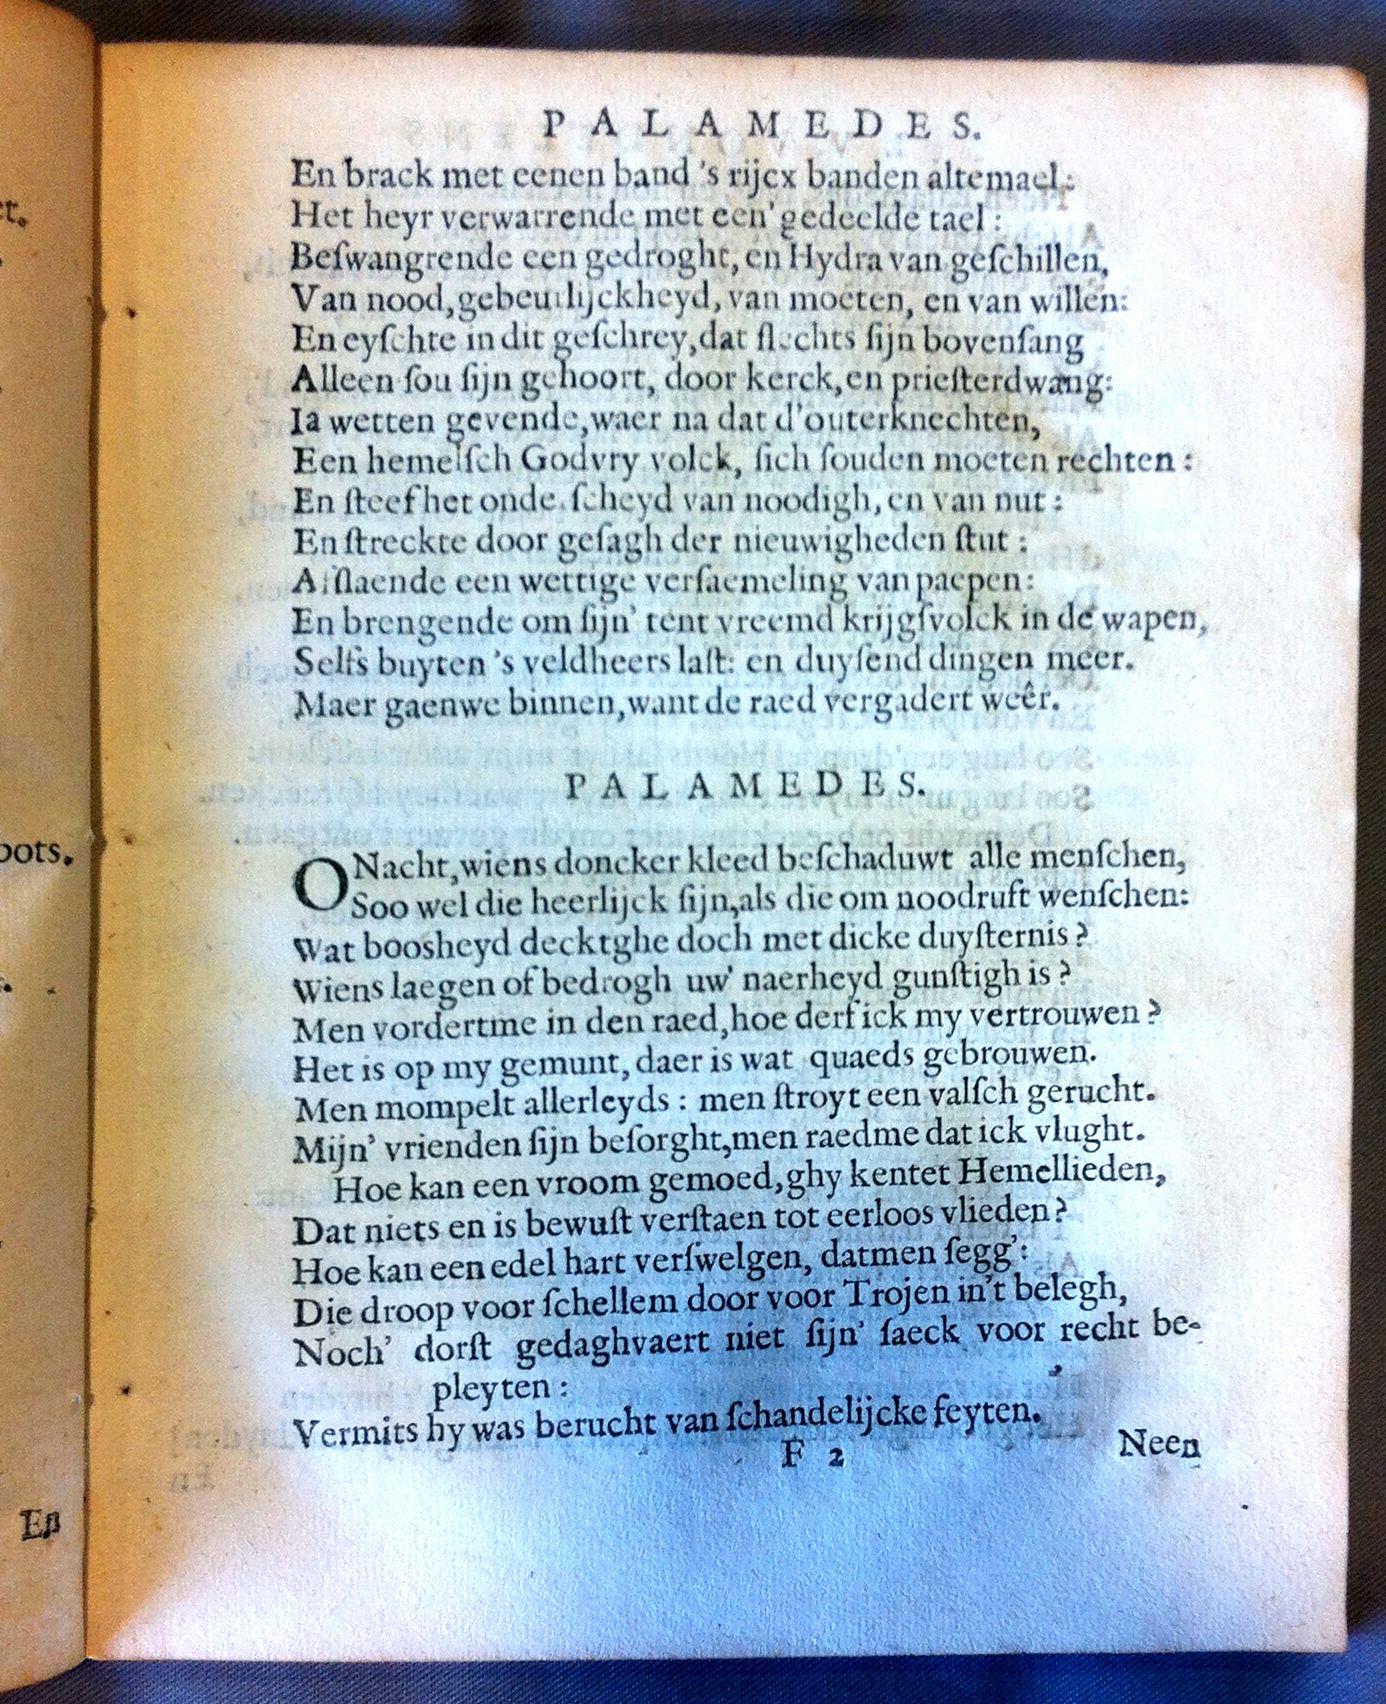 t.
oots.
En
PALAMEDES.
En brack met eenen band 's rijcx banden altemael:
Het heyr verwarrende met een' gedeelde tael:
Beſwangrende een gedroght, en Hydra van geſchillen,
Van nood, gebeurlijckheyd, van moeten, en van willen:
En eyſchte in dit geſchrey, dat ſlechts ſijn bovenſang
Alleen ſou ſijn gehoort, door kerck, en prieſterdwang:
Ia wetten gevende, waer na dat d'outerknechten,
Een hemelſch Godvry volck, ſich ſouden moeten rechten:
En ſteef het onderſcheyd van noodigh, en van nut:
En ſtreckte door geſagh der nieuwigheden ſtut:
Afſlaende een wettige verſaemeling van paepen:
En brengende om ſijn' tent vreemd krijgſvolck in de wapen,
Selfs buyten 's veldheers laſt: en duyſend dingen meer.
Maer gaenwe binnen, want de raed vergadert weêr.
PALAMEDES.
O Nacht, wiens doncker kleed beſchaduwt alle menſchen,
Soo wel die heerlijck ſijn, als die om noodruft wenſchen:
Wat boosheyd decktghe doch met dicke duyſternis?
Wiens laegen of bedrogh uw' naerheyd gunſtigh is?
Men vordertme in den raed, hoe derf ick my vertrouwen?
Het is op my gemunt, daer is wat quaeds gebrouwen.
Men mompelt allerleyds: men ſtroyt een valſch gerucht.
Mijn' vrienden ſijn beſorght, men raedme dat ick vlught.
Hoe kan een vroom gemoed, ghy kentet Hemellieden,
Dat niets en is bewuſt verſtaen tot eerloos vlieden?
Hoe kan een edel hart verſwelgen, datmen ſegg':
Die droop voor ſchellem door voor Trojen in't belegh,
Noch' dorſt gedaghvaert niet ſijn' ſaeck voor recht be-
pleyten:
Vermits hy was berucht van ſchandelijcke feyten.
F 2
Neen